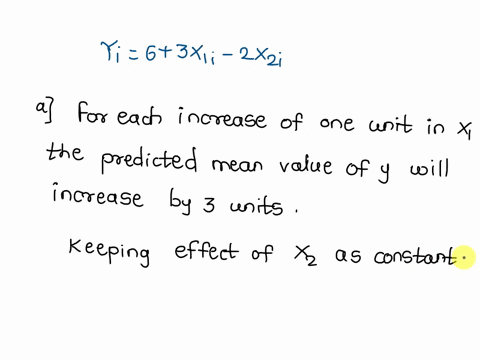 Yi = 6+3X1i − 2X2i
a] For each increase of one unit in X1
the predicted mean value of y will
increase by 3 units.
Keeping effect of X2 as constant.